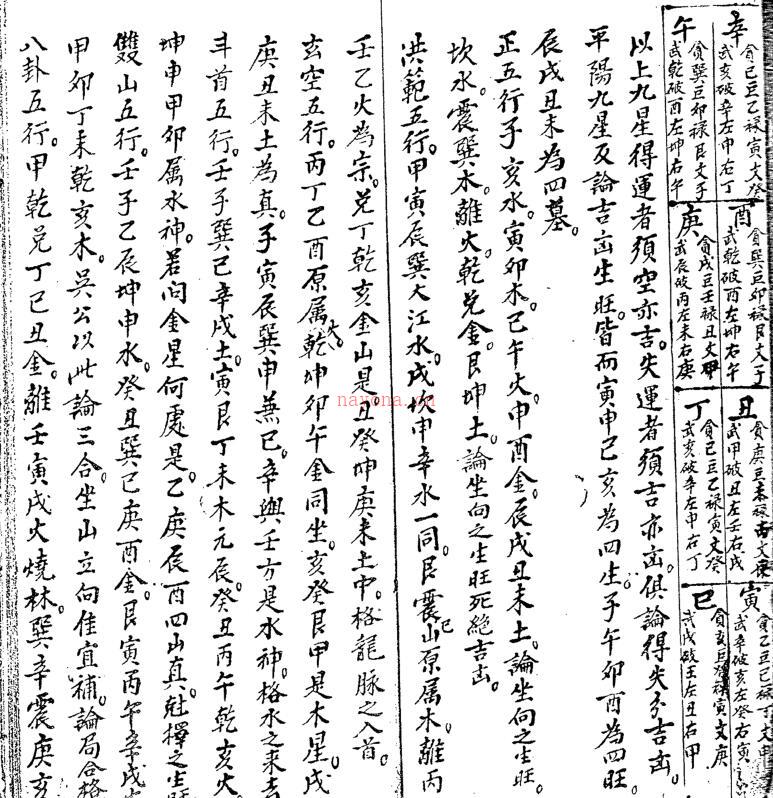 辛
貪巳巨乙祿寅文癸
武亥破辛左申右丁
酉
貪巽巨卯祿艮文子
武乾破酉左坤右午
丑
貪庚巨未
武甲破丑左壬右戌
寅
貪乙巨巳祿丁文申
武辛破亥左癸右寅
午
貪巽巨卯祿艮文子
武乾破酉左坤右午
庚
貪戌巨壬祿丑文甲
武辰破丙左未右庚
丁
貪巳巨乙祿寅文癸
武亥破辛左申右丁
巳
貪亥巨 祿寅文庚
武戌破壬左丑右甲
以上九星得運者須空亦吉。失運者須吉亦凶。俱論得失分吉凶。
平陽九星及論吉凶生旺。皆而寅申巳亥為四生。子午卯酉為四旺。
辰戌丑未為四墓。
正五行子亥水。寅卯木。巳午火。申酉金。辰戌丑未土。論坐向之生旺。
坎水。震巽木。離火。乾兌金。艮坤土。論坐向之生旺死絕吉凶。
洪範五行。甲寅辰巽大江水。戌坎申辛水一同。艮震巳山原属木。離丙
壬乙火為宗。兌丁乾亥金山是。丑癸坤庚未土中。格龍脉之入首。
玄空五行。丙丁乙酉原属火。乾坤卯午金同坐。亥癸艮甲是木星。戌
庚丑未土為真。子寅辰巽申兼巳。辛與壬方是水神。格水之來去
斗首五行。壬子巽巳辛戌土。寅艮丁未木元辰。癸丑丙午乾亥火。
坤申甲卯属水神。若问金星何處是。乙庚辰酉四山真。尅擇之生旺
雙山五行。壬子乙辰坤申水。癸丑巽巳庚酉金。艮寅丙午辛戌
甲卯丁未乾亥木。吳公以此論三合。坐山立向佳宜補。論局合格
八卦五行。甲乾兌丁巳丑金。離壬寅戌火燒林。巽辛震庚亥
nayona.cn